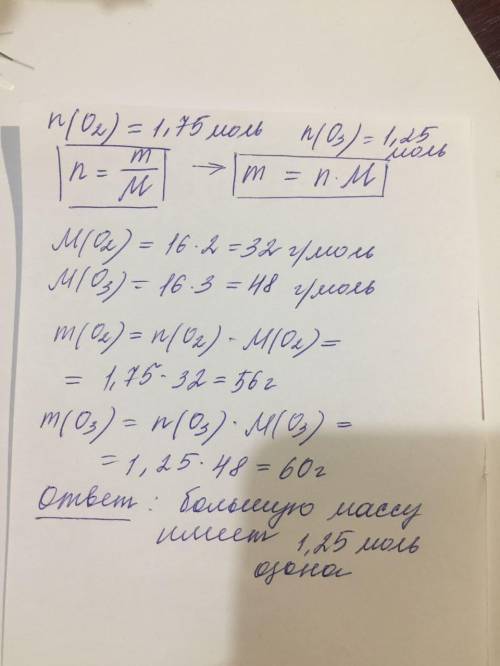 n(O₂) = 1,75 моль n(O₃) = 1,25 моль
n = m/M → m = n · M
M(O₂) = 16 · 2 = 32 г/моль
M(O₃) = 16 · 3 = 48 г/моль
m(O₂) = n(O₂) · M(O₂) =
= 1,75 · 32 = 56 г
m(O₃) = n(O₃) · M(O₃) =
= 1,25 · 48 = 60 г
Ответ: большую массу
имеет 1,25 моль
озона